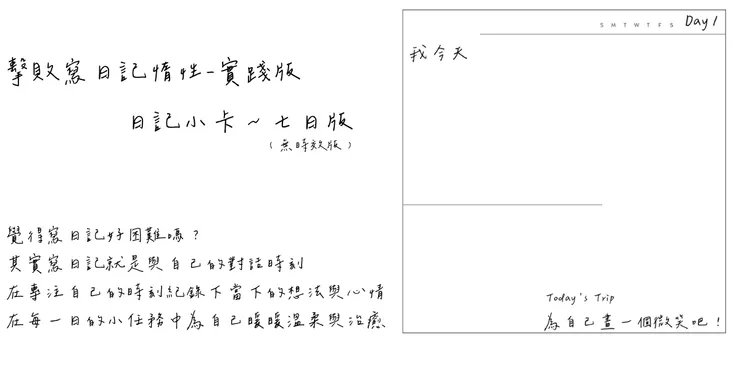 擊敗寫日記惰性-實踐版
日記小卡~七日版
(無時效版)
覺得寫日記好困難嗎?
其實寫日記就是與自己的對話時刻
在專注自己的時刻紀錄下當下的想法與心情
在每一日的小任務中為自己暖暖溫柔與治癒
S M T W T F S Day 1
我今天
Today's Trip
為自己畫一個微笑吧!